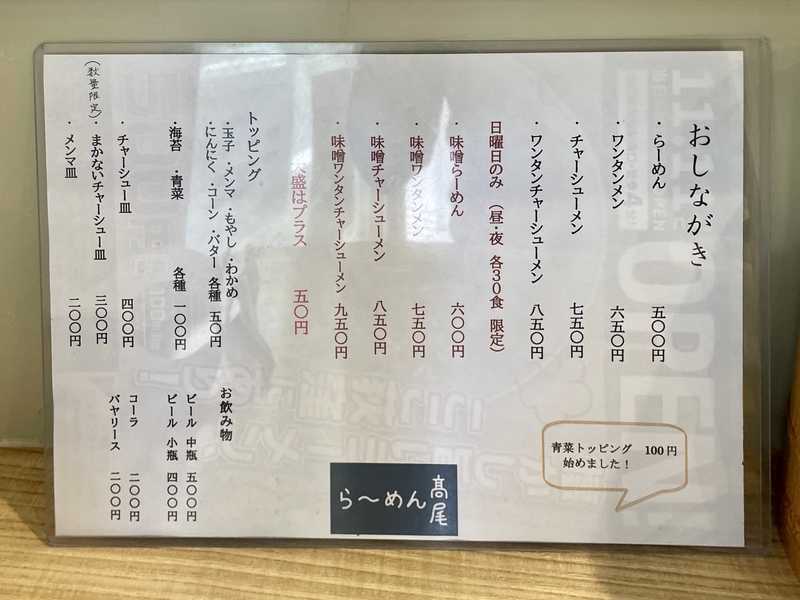 おしながき
・らーめん 五〇〇円
・ワンタンメン 六五〇円
・チャーシューメン 七五〇円
・ワンタンチャーシューメン 八五〇円
日曜日のみ (昼・夜 各30食 限定)
・味噌らーめん 六〇〇円
・味噌ワンタンメン 七五〇円
・味噌チャーシューメン 八五〇円
・味噌ワンタンチャーシューメン 九五〇円
大盛はプラス 五〇円
トッピング
・玉子 ・メンマ ・もやし ・わかめ
・にんにく ・コーン ・バター 各種 五〇円
・海苔 ・青菜 各種 一〇〇円
・チャーシュー皿 四〇〇円
(数量限定)・まかないチャーシュー皿 三〇〇円
・メンマ皿 二〇〇円
お飲み物
ビール 中瓶 五〇〇円
ビール 小瓶 四〇〇円
コーラ 二〇〇円
バヤリース 二〇〇円
青菜トッピング 100円
始めました!
髙尾
ら〜めん
OPEN